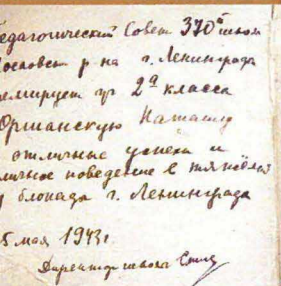 едагогический Совет 370ой школ
осковск р-на г. Ленинграда
емирует уч 2а класса
Оршанскую Наташу
отличные успехи и
личное поведение в тяжёлы
блокады г. Ленинграда
5 мая 1943г.
Директор школы